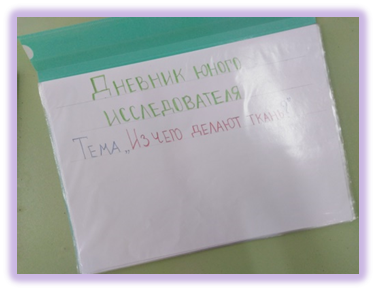 Дневник юного
исследователя
Тема „Из чего делают ткани"